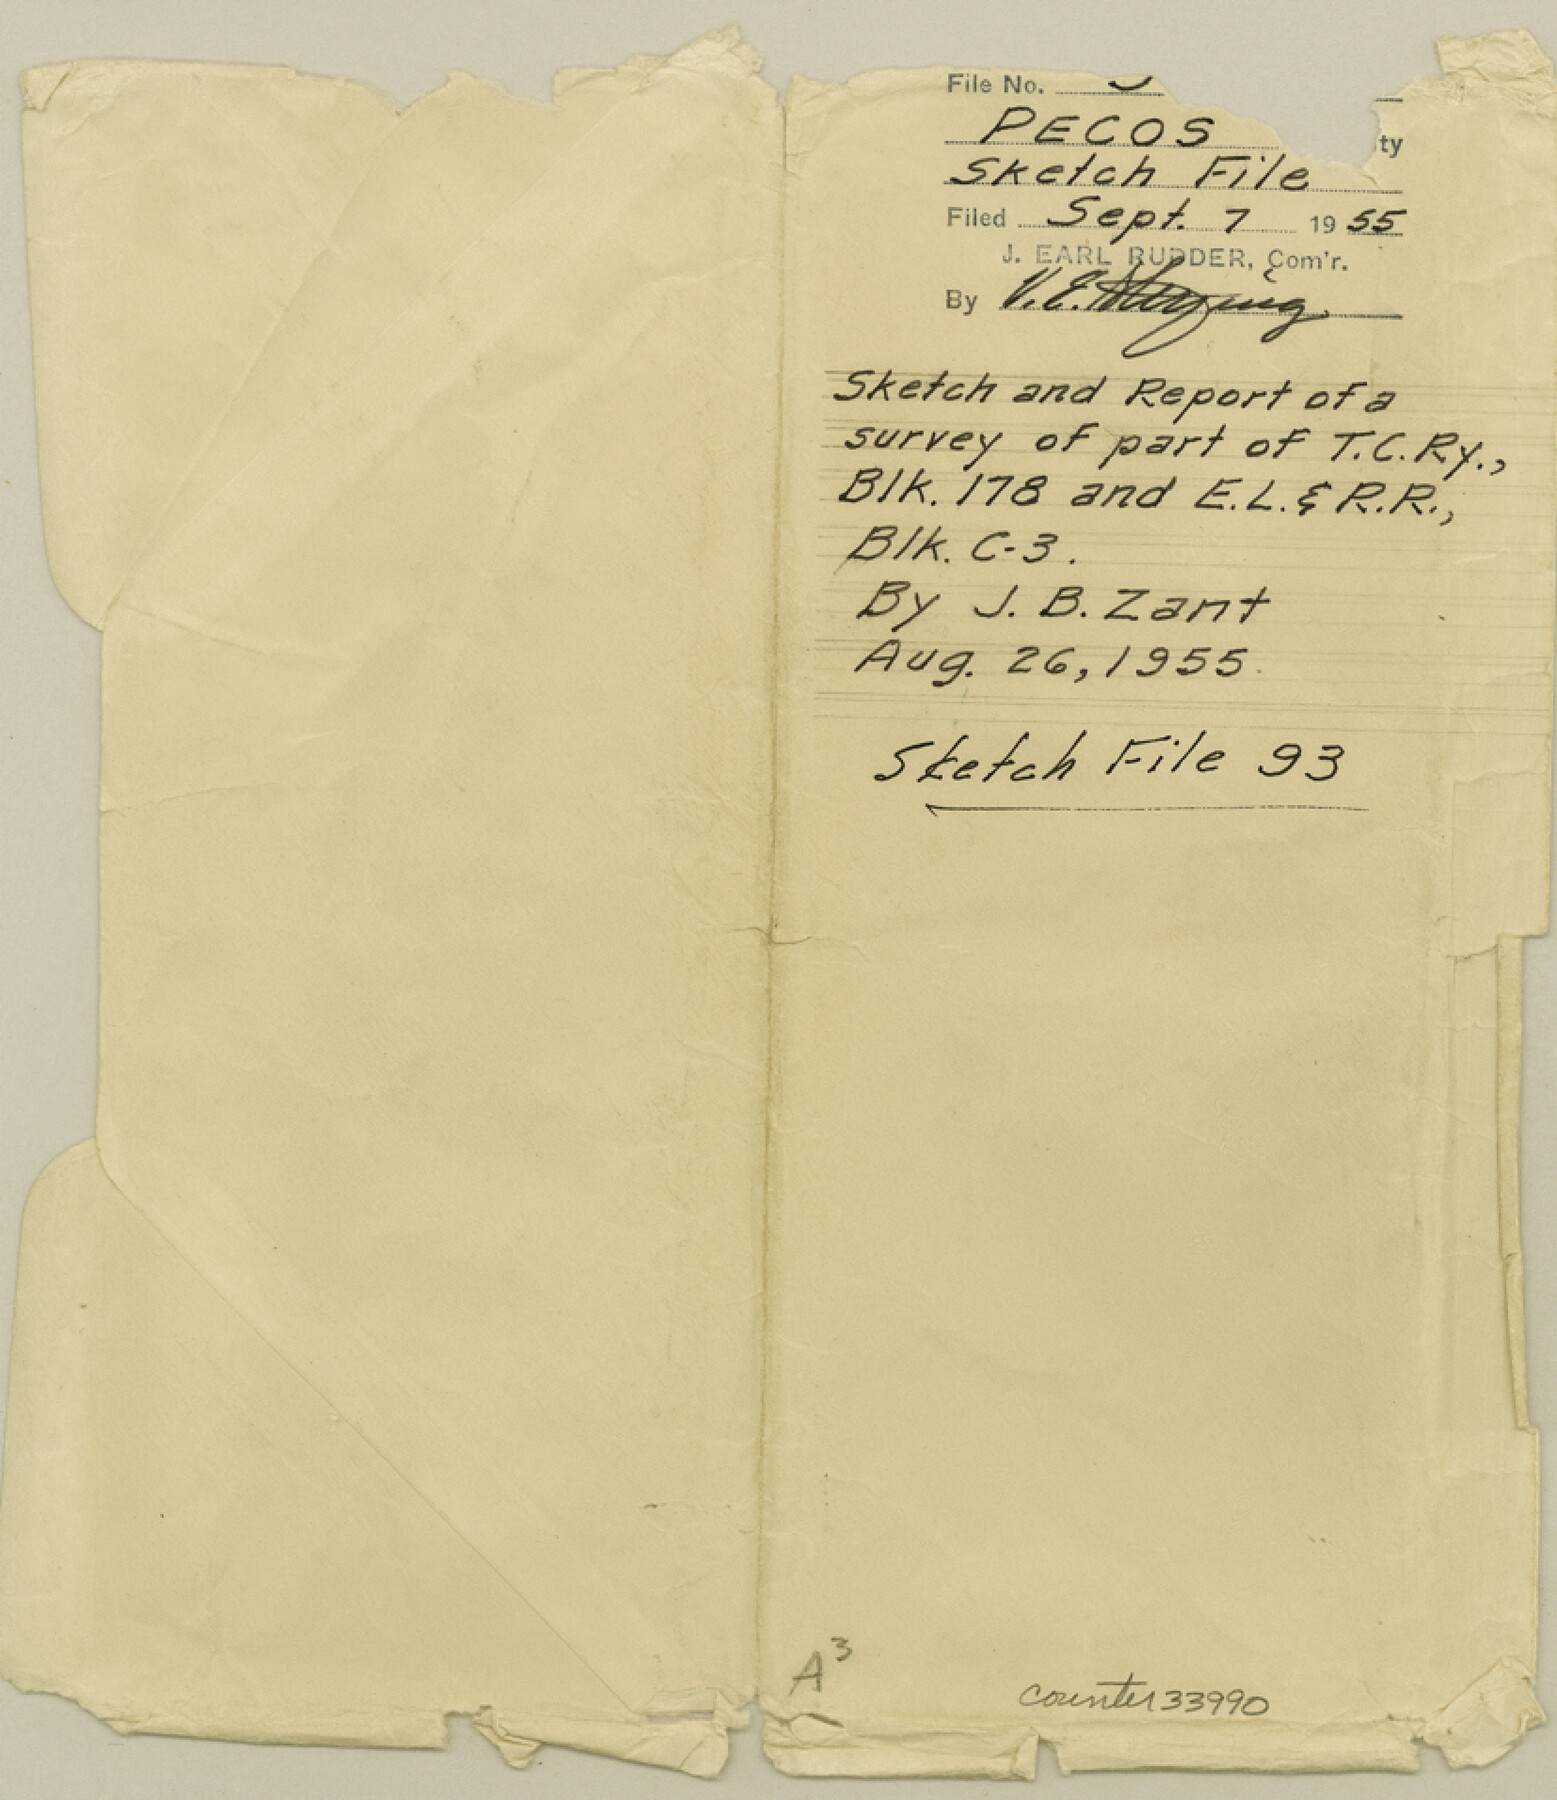 File No.
PECOS ty
Sketch File
Filed Sept. 7 1955
J. EARL RUDDER, Com'r.
By V.E.
Sketch and Report of a
survey of part of T.C.Ry.,
Blk. 178 and E.L.& R.R.,
Blk. C-3.
By J. B. Zant
Aug. 26, 1955
Sketch File 93
A3
counter 33990